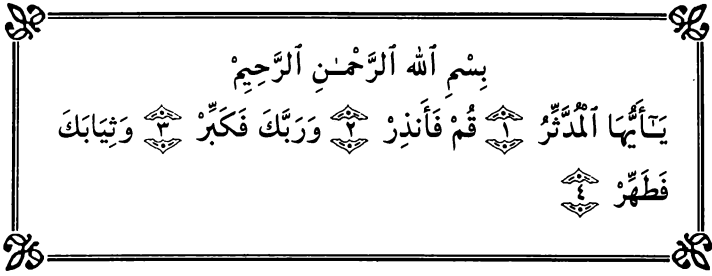 بِسْمِ ٱللَّهِ ٱلرَّحْمَـٰنِ ٱلرَّحِيمِ
يَـٰٓأَيُّهَا ٱلْمُدَّثِّرُ ١ قُمْ فَأَنذِرْ ٢ وَرَبَّكَ فَكَبِّرْ ٣ وَثِيَابَكَ
فَطَهِّرْ ٤